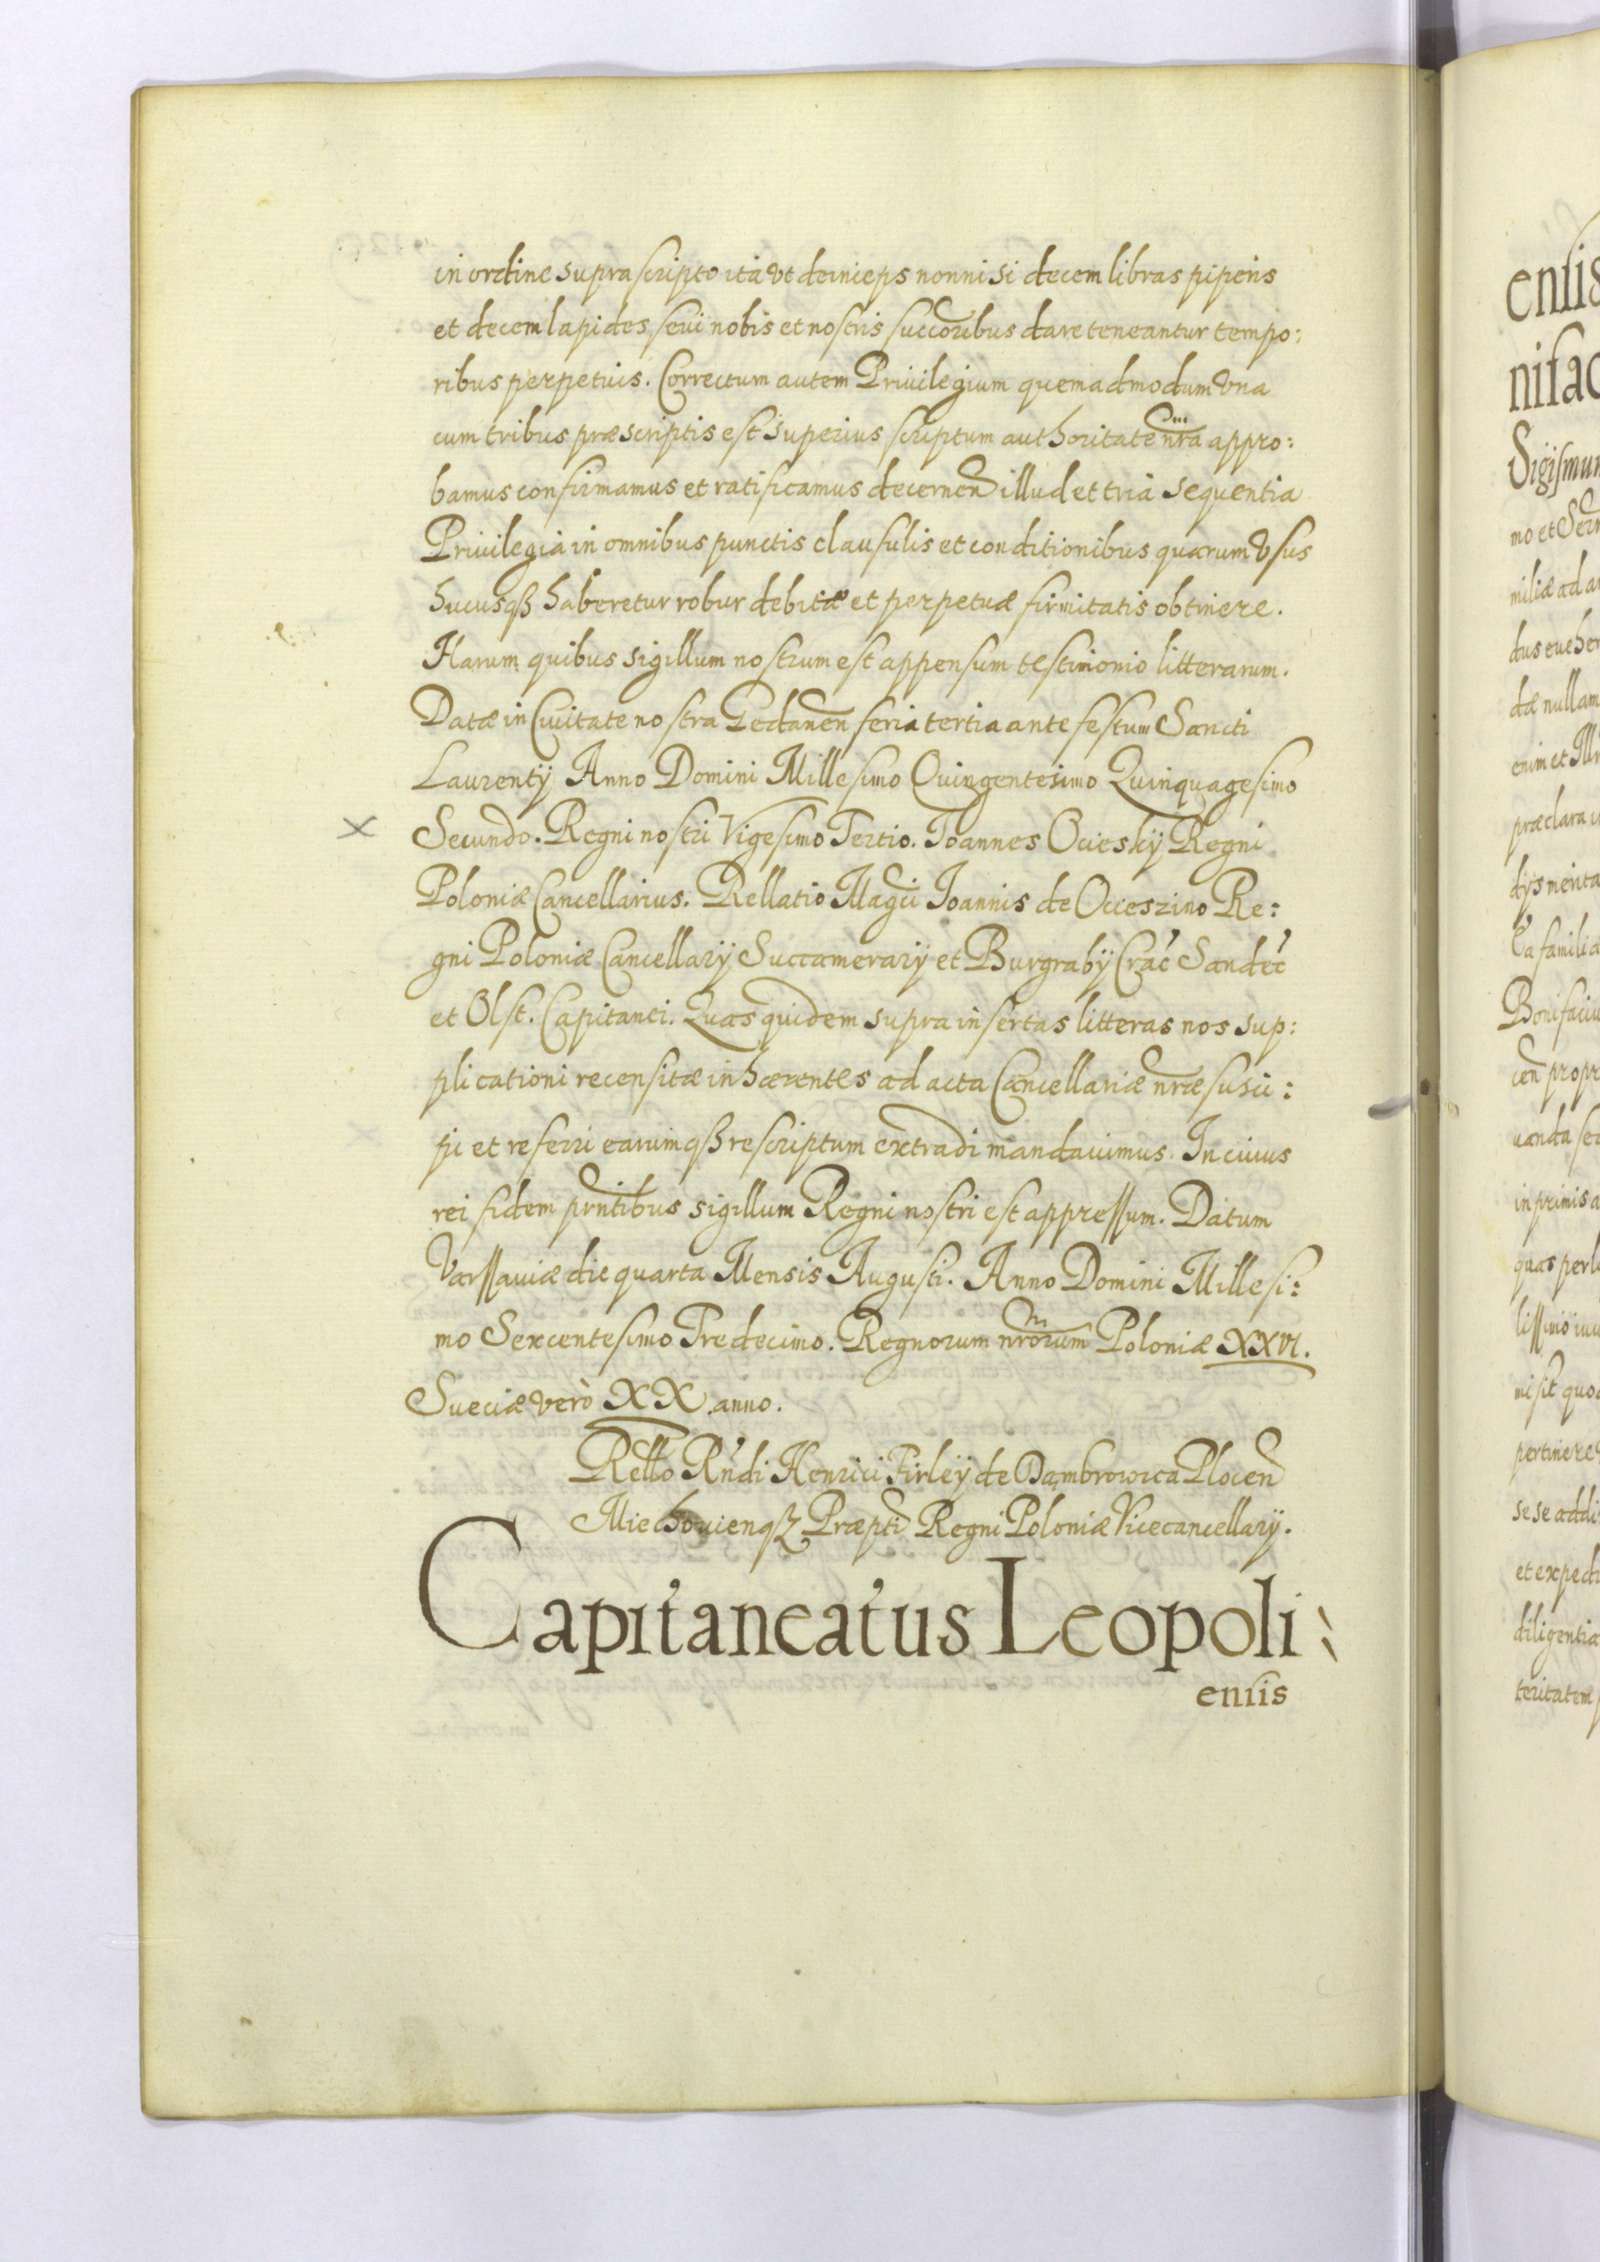 in ordine suprascripto ità vt deinieps nonnisi decem libras piperis
et decem lapides sevi nobis et nostris succoribus dare teneantur tempo:
ribus perpetuis. Correctum autem Priuilegium quemadmodum vna
cum tribus præscriptis est superius scriptum authoritate nr̃a appro:
bamus confirmamus et ratificamus decernen illud et tria sequentia
Priuilegia in omnibus punctis clausulis et conditionibus quarum vsus
hucusqꝫ haberetur robur debitæ et perpetuæ firmitatis obtinere.
Harum quibus sigillum nostrum est appensum testimonio litterarum.
Datæ in Ciuitate nostra Gedanen feria tertia ante festum Sancti
Laurentÿ Anno Domini Millesimo Quingentesimo Quinquagesimo
Secundo. Regni nostri Vigesimo Tertio. Joannes Ocieskÿ Regni
Poloniæ Cancellarius. Rellatio Magci Joannis de Occeszino Re:
gni Poloniæ Cancellarÿ Succamerarÿ et Burgrabÿ Crac̓ Sandec̓
et Olst. Capitanei. Quas quidem supra insertas litteras nos sup:
plicationi recensitæ inhærentes ad acta Cancellariæ nr̃æ susci:
pi et referri earumqꝫ rescriptum extradi mandauimus. In cuius
rei fidem pñtibus sigillum Regni nostri est appressum. Datum
Varssauiæ die quarta Mensis Augusti. Anno Domini Millesi:
mo Sexcentesimo Tredecimo. Regnorum nr̃orum Poloniæ XXVI.
Sueciæ verò XX anno.
Rello Rn̓di Henrici Firleÿ de Dambrowica Plocen
Miechouienqꝫ Præpti Regni Poloniæ Vicecancellarÿ.
Capitaneatus Leopoli
ensis
ensis
Sigismun
mo et
miliæ ad
dus eueher
dæ nullam
enim et Ill
præclara
dÿs merita
Ea familia
Bonifaciu
cen propr
uanda
in primis a
quas perl
lissimo
misit quo
pertinere
sese addi
et expedi
diligentia
teritatem